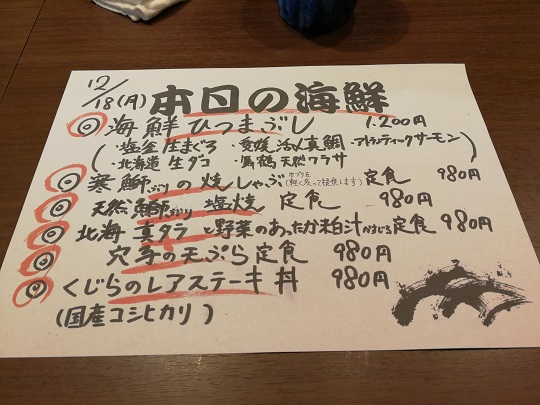 12/18(月) 本日の海鮮
◎ 海鮮ひつまぶし 1.200円
(・塩釜 生まぐろ ・愛媛 活〆真鯛 ・アトランティックサーモン
・北海道 生ダコ ・舞鶴 天然ワラサ )
◎ 寒鰤ぶりの焼しゃぶ (軽く炙って提供します) 定食 980円
◎ 天然鰤ぶり 塩焼 定食 980円
◎ 北海 真タラと野菜のあったか粕汁かすじる定食 980円
◎ 穴子の天ぷら定食 980円
◎ くじらのレアステーキ丼 980円
(国産コシヒカリ)